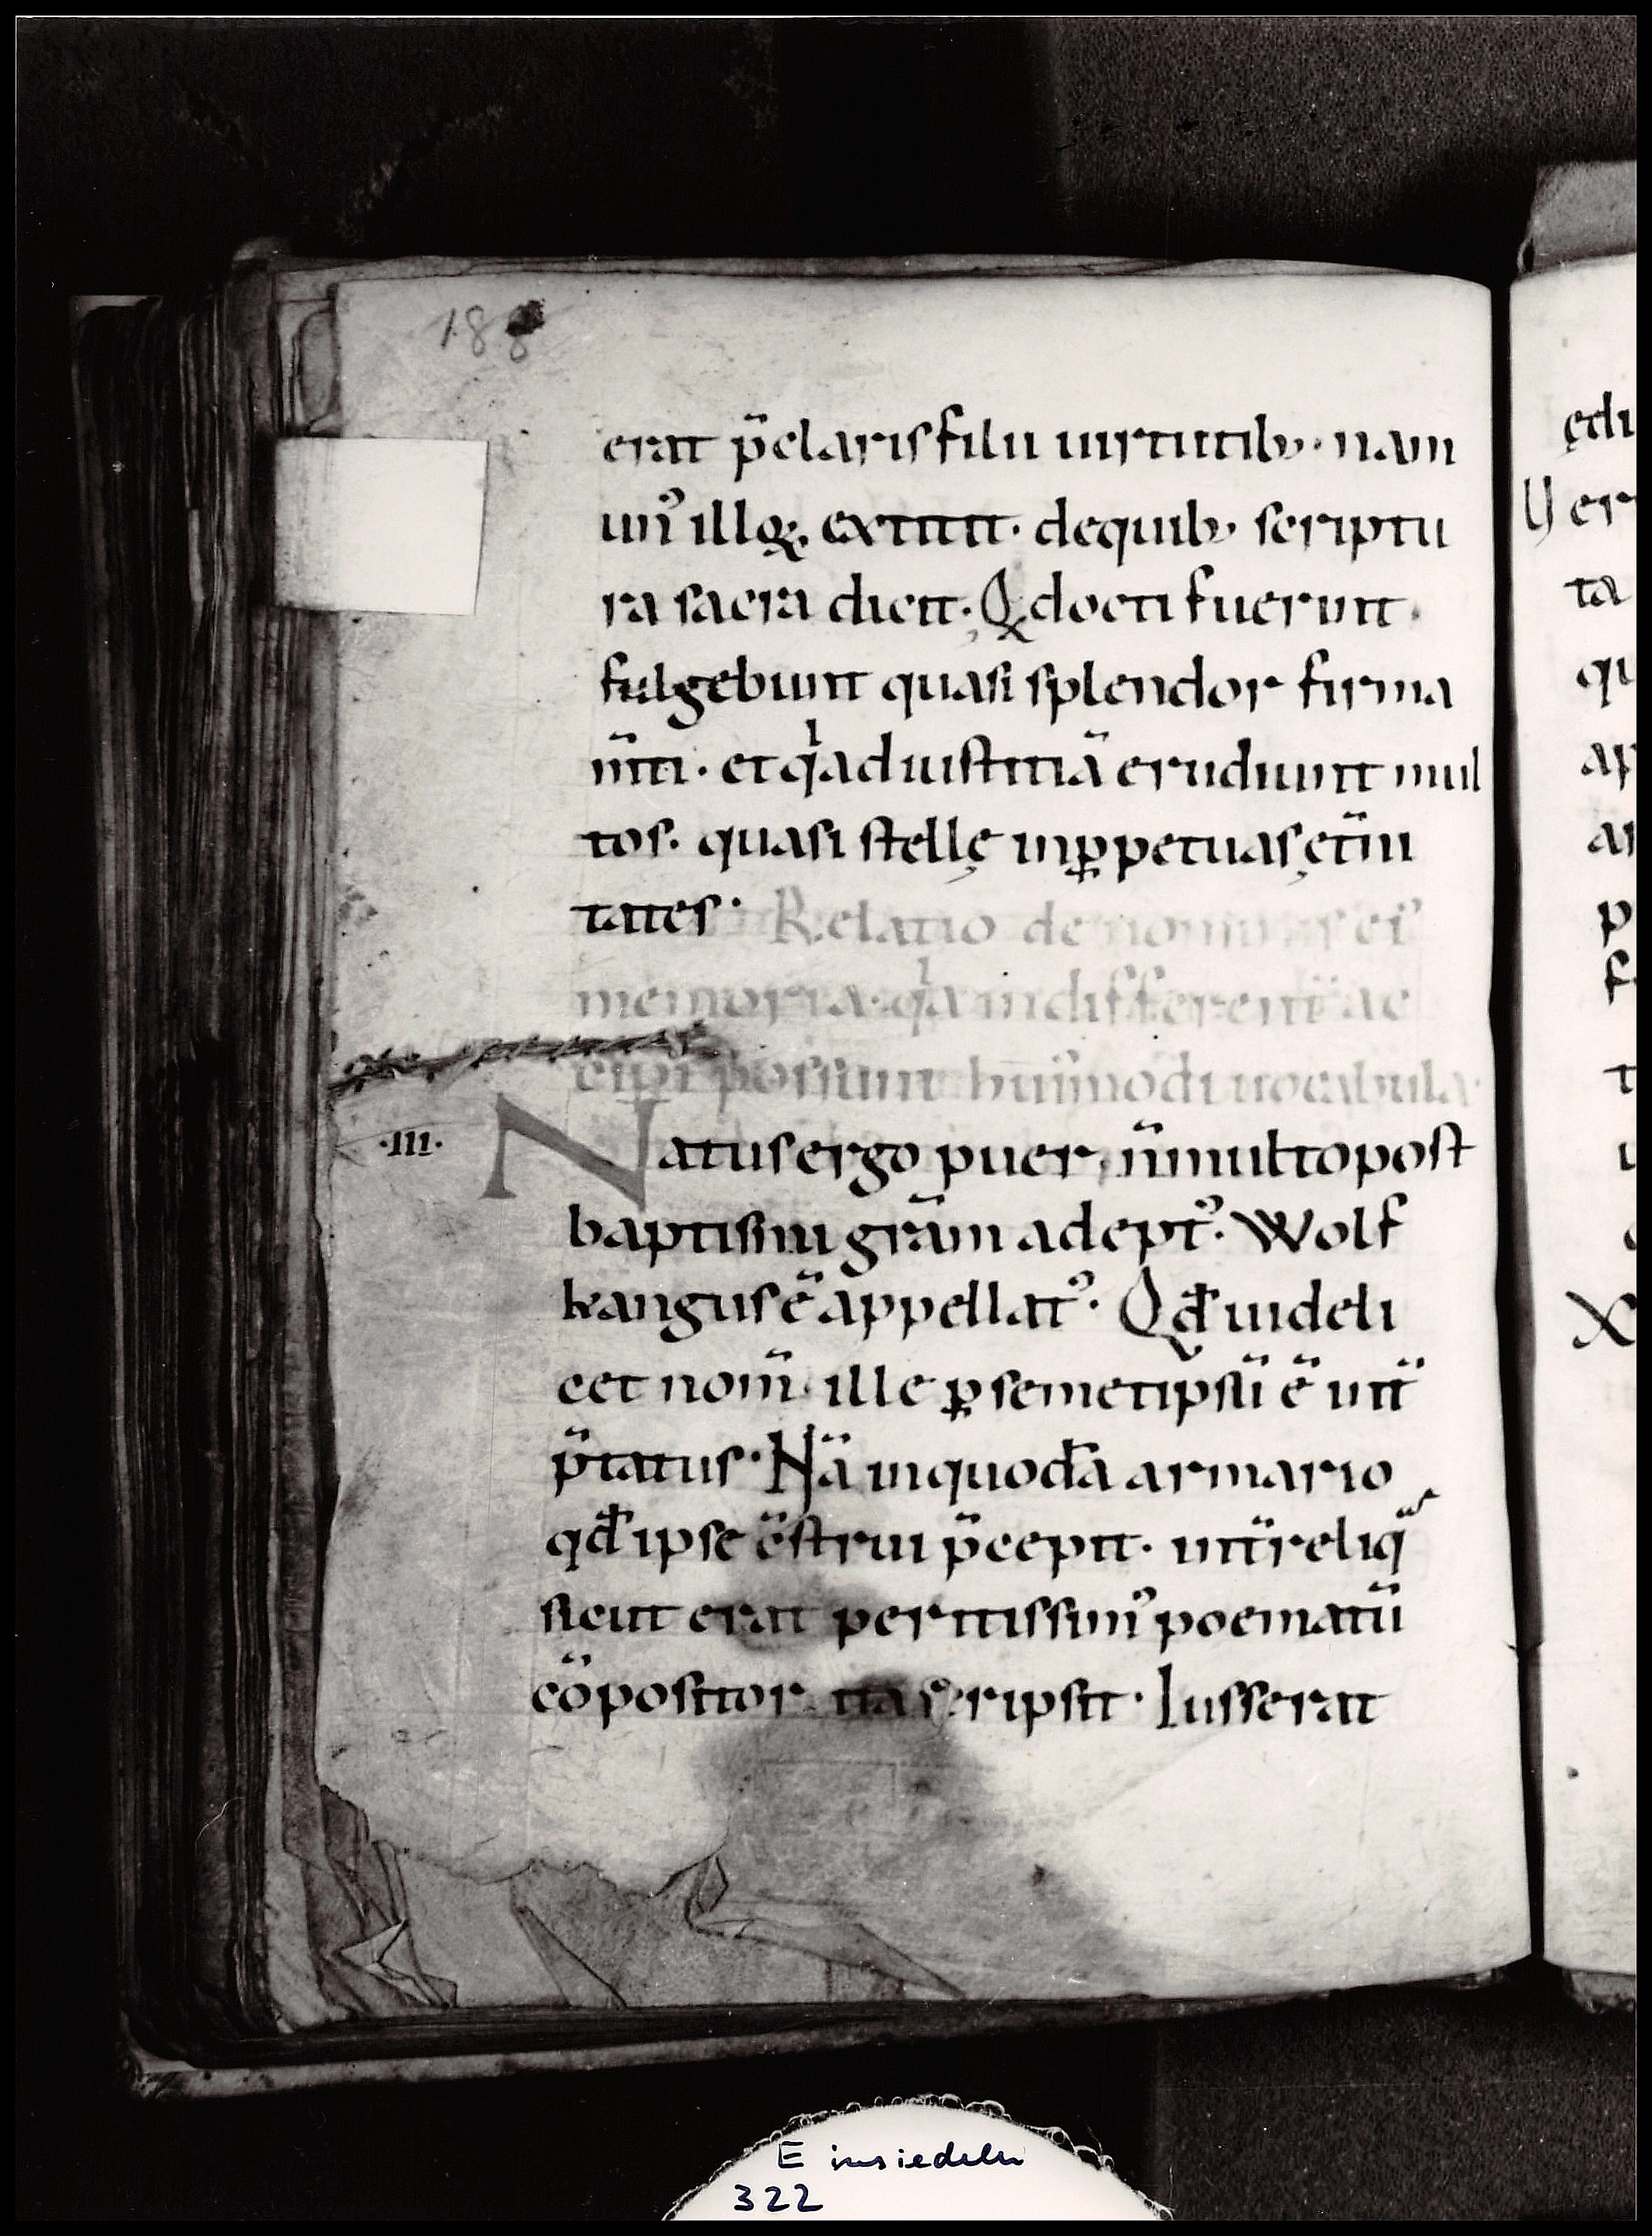 188
erat p̄claris filii uirtutib; · nam
un᾽ illoꝝ extitit · de quib; scriptu
ra sacra dicit · Q docti fuerunt
fulgebunt quasi splendor firma
m̄ti · et qͥ ad iustitiā erudiunt mul
tos · quasi stellę in ꝑpetuas ęt̄ni
tates · Relatio de ei᾽
memoria · qͥa indifferent̄ ac
cipi possunt hui᾽modi uocabula
·III· Natus ergo puer, n̄ multo post
baptismi grām adept᾽ · Wolf
kangus ē appellat᾽ · Qđ uideli
cet nom̄ · ille ꝑ semetipsū ē int̄
p̄tatus · Nā in quodā armario
qđ ipse ōstrui p̄cepit · int̄ reliq̄
sicut erat peritissim᾽ poematū
cōpositor ita scripsit · Iusserat
ędi
er
ta
qu
ap
ar
p
f
t
u
X
Einsiedeln
322